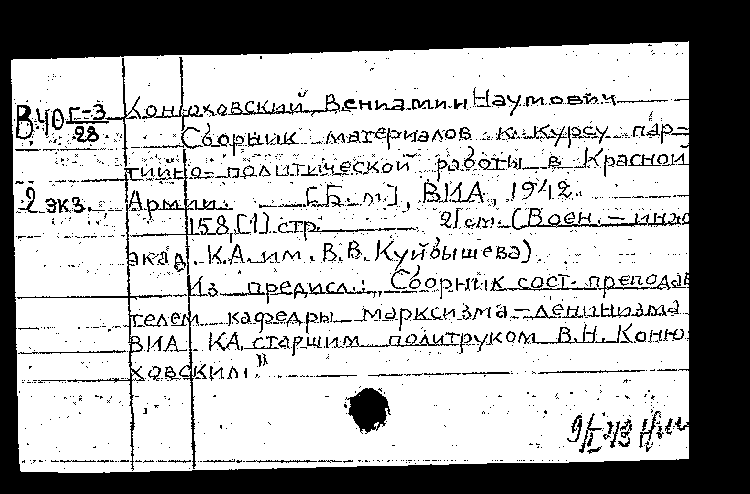 В40 Г-3/28 Конюховский, Вениамин Наумович
Сборник материалов к курсу пар-
тийно-политической работы в Красной
2 экз. Армии. [Б. м], ВИА, 1942.
158,[1] стр. 21 см. (Воен.-инж
акад. К.А. им. В.В. Куйбышева)
Из предисл.: „Сборник сост. преподав
телем кафедры марксизма-ленинизма
ВИА КА старшим политруком В.Н. Коню-
ховским."
9/I 43